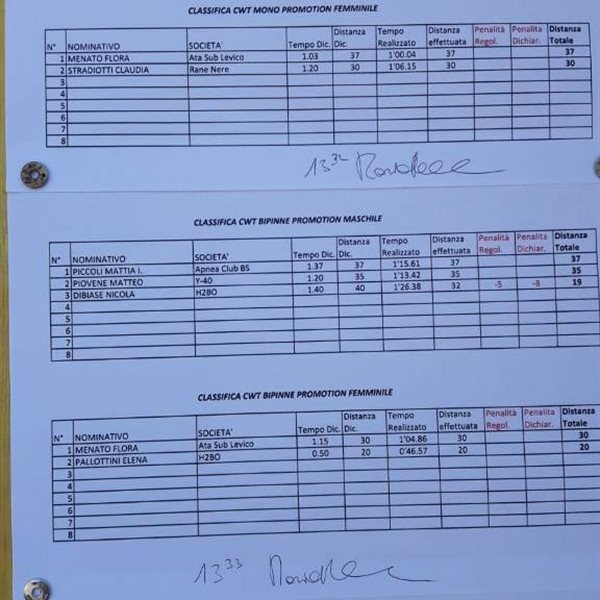 CLASSIFICA CWT MONO PROMOTION FEMMINILE
N° NOMINATIVO SOCIETA' Tempo Dic. Distanza Dic. Tempo Realizzato Distanza effettuata Penalità Regol. Penalita Dichiar. Distanza Totale
1 MENATO FLORA Ata Sub Levico 1.03 37 1'00.04 37 37
2 STRADIOTTI CLAUDIA Rane Nere 1.20 30 1'06.15 30 30
3
4
5
6
7
8
13 32
CLASSIFICA CWT BIPINNE PROMOTION MASCHILE
N° NOMINATIVO SOCIETA' Tempo Dic. Distanza Dic. Tempo Realizzato Distanza effettuata Penalità Regol. Penalita Dichiar. Distanza Totale
1 PICCOLI MATTIA I. Apnea Club BS 1.37 37 1'15.61 37 37
2 PIOVENE MATTEO Y-40 1.20 35 1'13.42 35 35
3 DIBIASE NICOLA H2BO 1.40 40 1'26.38 32 -5 -8 19
4
5
6
7
8
CLASSIFICA CWT BIPINNE PROMOTION FEMMINILE
N° NOMINATIVO SOCIETA' Tempo Dic. Distanza Dic. Tempo Realizzato Distanza effettuata Penalità Regol. Penalita Dichiar. Distanza Totale
1 MENATO FLORA Ata Sub Levico 1.15 30 1'04.86 30 30
2 PALLOTTINI ELENA H2BO 0.50 20 0'46.57 20 20
3
4
5
6
7
8
13 33